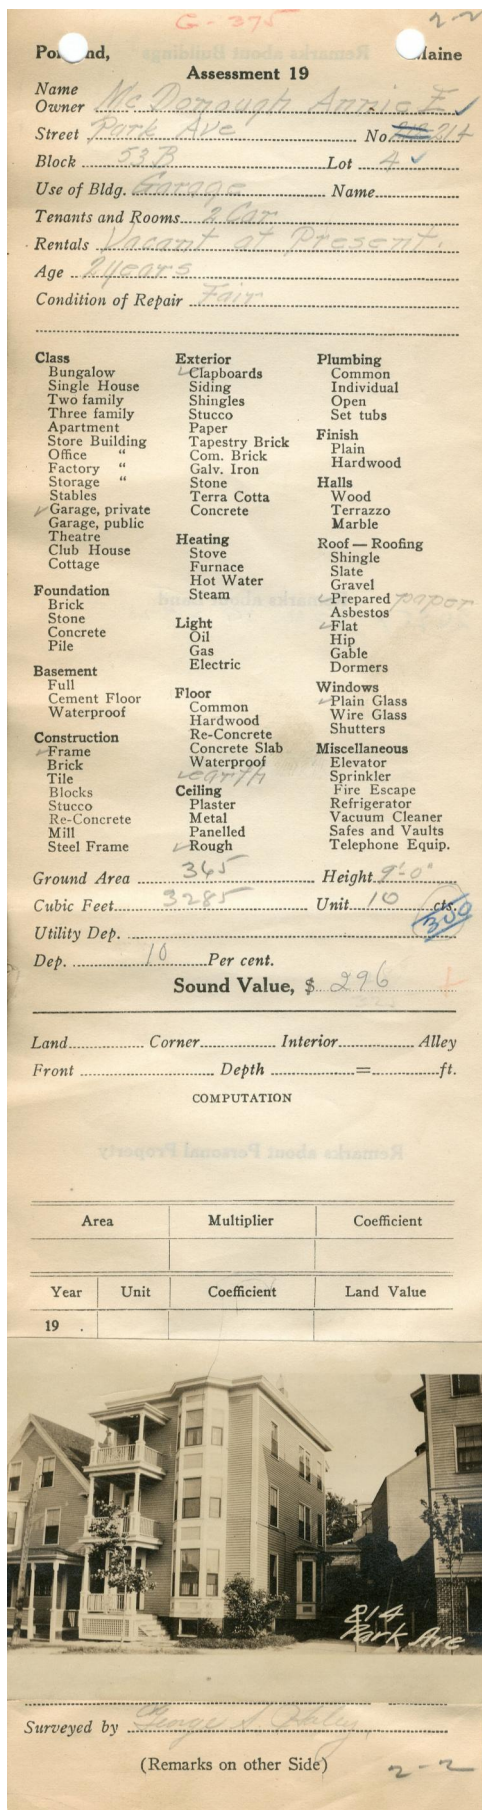 G - 375
2-2
Portland, Maine
Assessment 19
Name
Owner McDonough Annie E ✓
Street Park Ave No. 214
Block 53B Lot 4 ✓
Use of Bldg. Garage Name
Tenants and Rooms 2 Car
Rentals Vacant at Present.
Age 2 years
Condition of Repair Fair
Class
Bungalow
Single House
Two family
Three family
Apartment
Store Building
Office "
Factory "
Storage "
Stables
✓ Garage, private
Garage, public
Theatre
Club House
Cottage
Foundation
Brick
Stone
Concrete
Pile
Basement
Full
Cement Floor
Waterproof
Construction
✓ Frame
Brick
Tile
Blocks
Stucco
Re-Concrete
Mill
Steel Frame
Exterior
✓ Clapboards
Siding
Shingles
Stucco
Paper
Tapestry Brick
Com. Brick
Galv. Iron
Stone
Terra Cotta
Concrete
Heating
Stove
Furnace
Hot Water
Steam
Light
Oil
Gas
Electric
Floor
Common
Hardwood
Re-Concrete
Concrete Slab
Waterproof
✓ earth
Ceiling
Plaster
Metal
Panelled
✓ Rough
Plumbing
Common
Individual
Open
Set tubs
Finish
Plain
Hardwood
Halls
Wood
Terrazzo
Marble
Roof — Roofing
Shingle
Slate
Gravel
✓ Prepared paper
Asbestos
✓ Flat
Hip
Gable
Dormers
Windows
✓ Plain Glass
Wire Glass
Shutters
Miscellaneous
Elevator
Sprinkler
Fire Escape
Refrigerator
Vacuum Cleaner
Safes and Vaults
Telephone Equip.
Ground Area 365 Height 9'-0"
Cubic Feet 3285 Unit 10 cts.
300
Utility Dep.
Dep. 10 Per cent.
Sound Value, $ 296
Land Corner Interior Alley
Front Depth = ft.
COMPUTATION
Area Multiplier Coefficient
Year Unit Coefficient Land Value
19 .
814
Park Ave
Surveyed by George S
(Remarks on other Side)
2-2